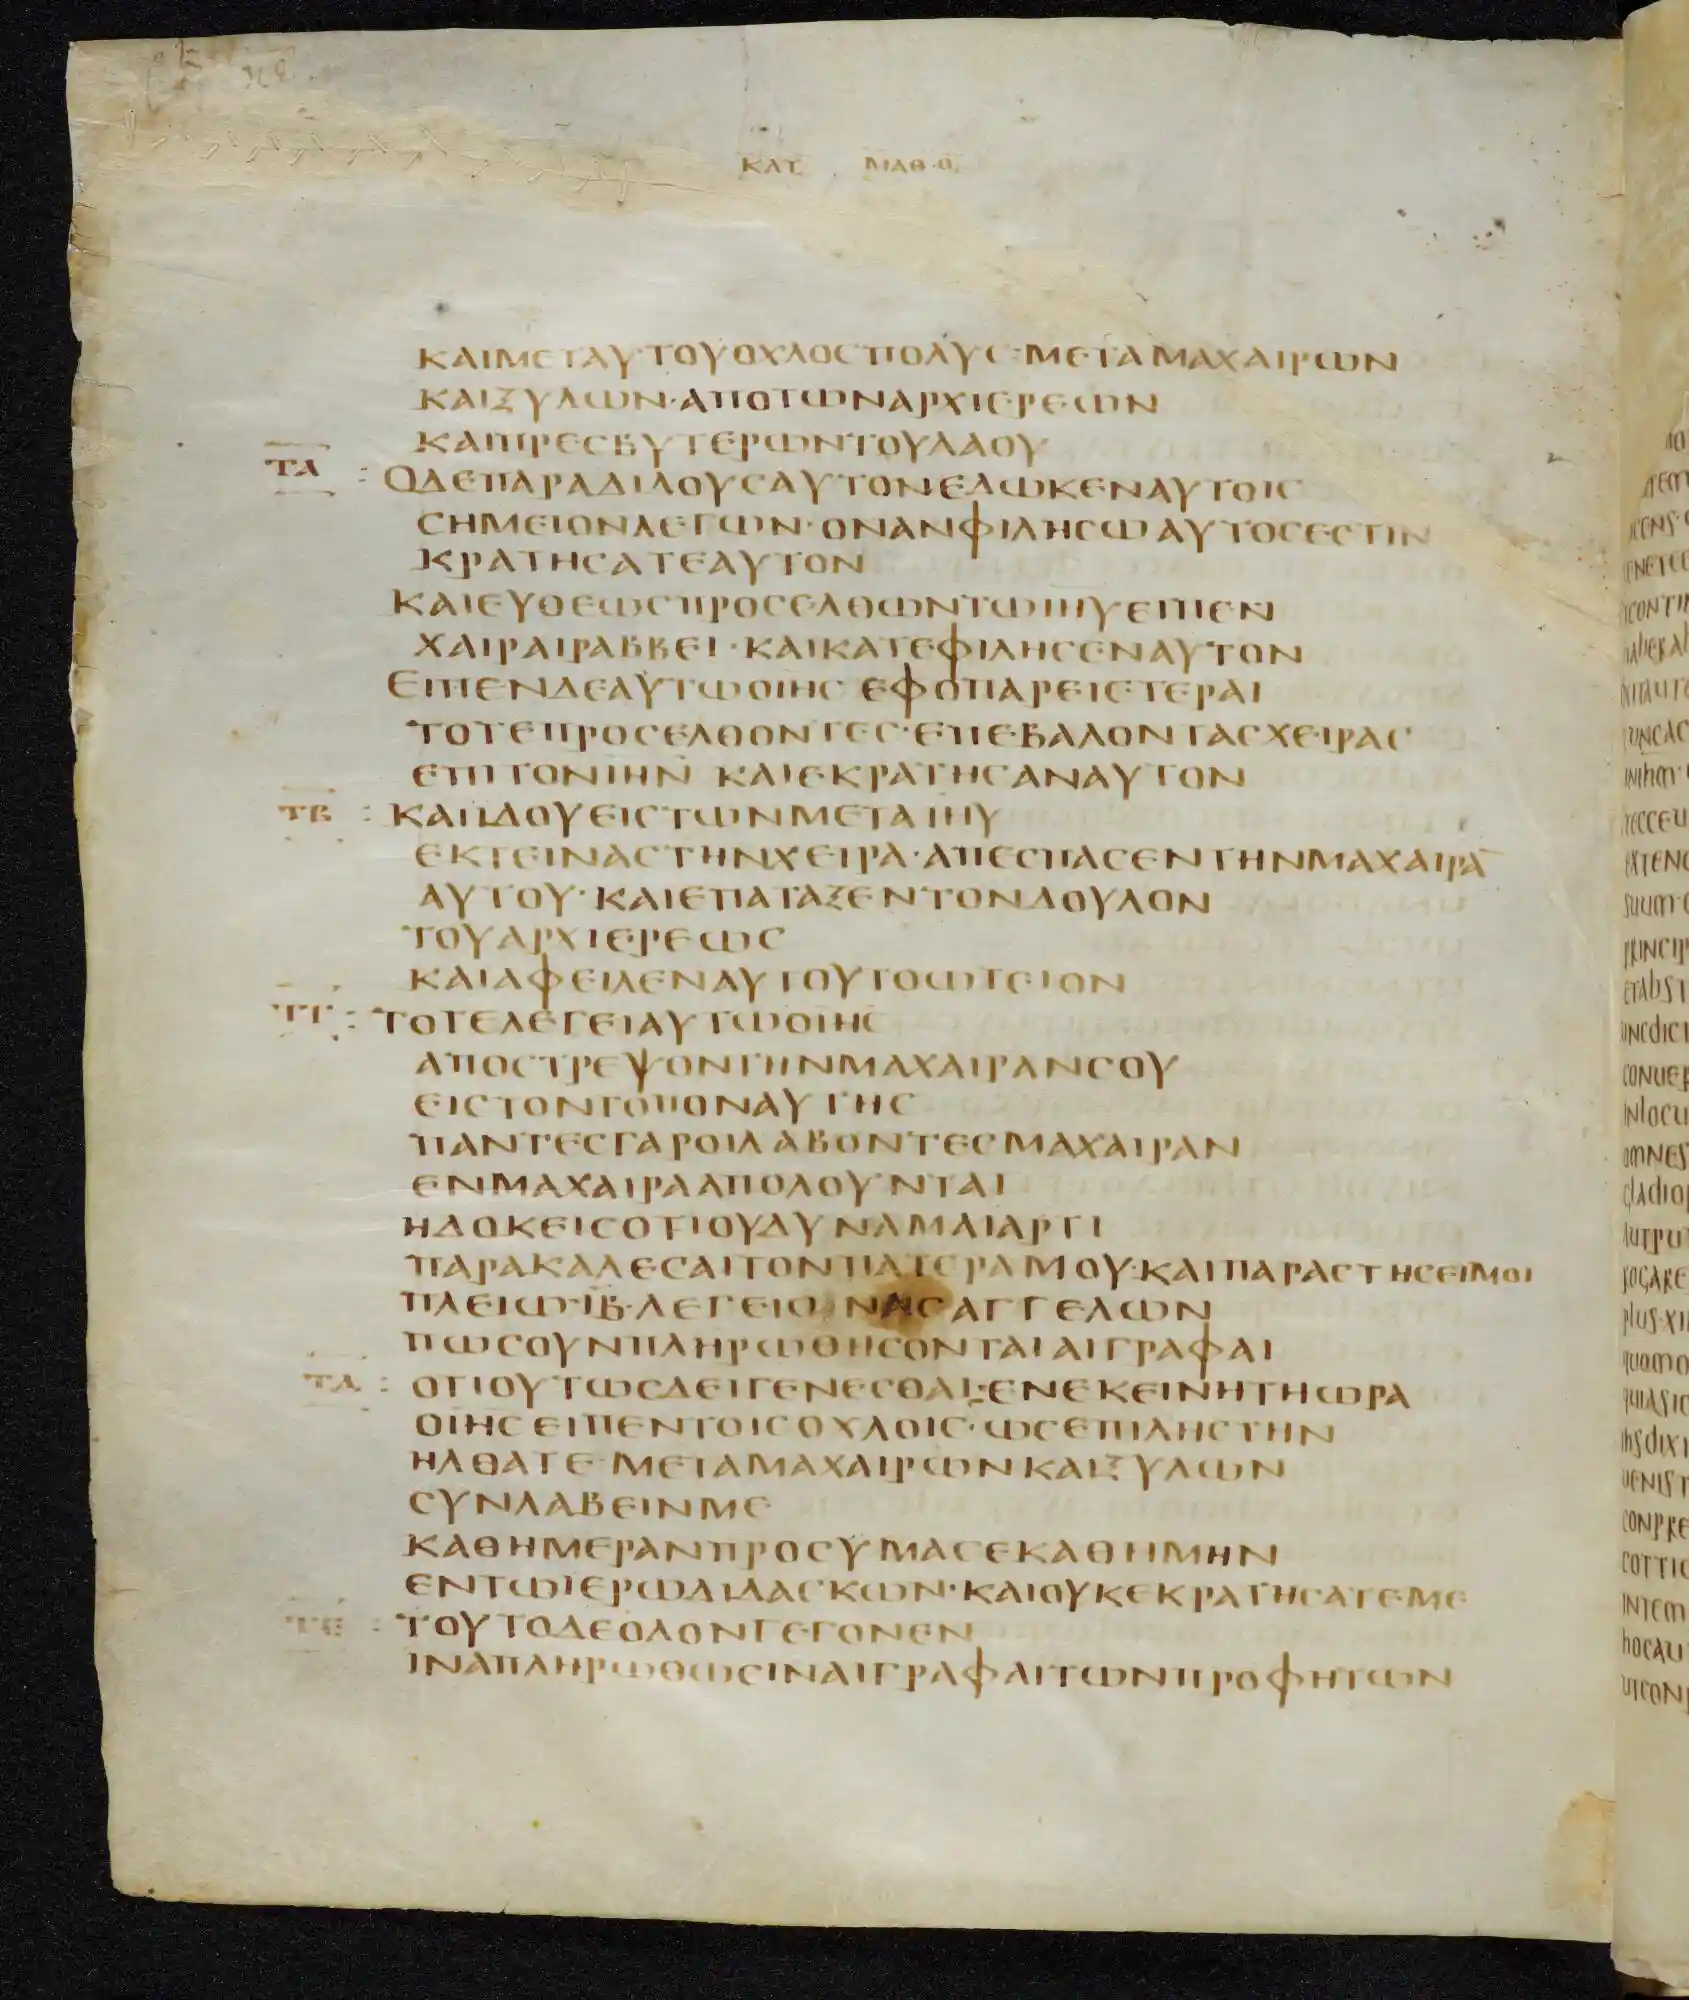 ΚΑΤ ΜΑΘΘ
ΚΑΙΜΕΤΑΥΤΟΥΟΧΛΟΣΠΟΛΥΣ·ΜΕΤΑΜΑΧΑΙΡΩΝ
ΚΑΙΞΥΛΩΝ·ΑΠΟΤΩΝΑΡΧΙΕΡΕΩΝ
ΚΑΙΠΡΕΣΒΥΤΕΡΩΝΤΟΥΛΑΟΥ
ΤΑ : ΟΔΕΠΑΡΑΔΙΔΟΥΣΑΥΤΟΝΕΔΩΚΕΝΑΥΤΟΙΣ
ΣΗΜΕΙΟΝΛΕΓΩΝ·ΟΝΑΝΦΙΛΗΣΩΑΥΤΟΣΕΣΤΙΝ
ΚΡΑΤΗΣΑΤΕΑΥΤΟΝ
ΚΑΙΕΥΘΕΩΣΠΡΟΣΕΛΘΩΝΤΩΙΗΥΕΙΠΕΝ
ΧΑΙΡΑΙΡΑΒΒΕΙ·ΚΑΙΚΑΤΕΦΙΛΗΣΕΝΑΥΤΟΝ
ΕΙΠΕΝΔΕΑΥΤΩΟΙΗΣ ΕΦΟΠΑΡΕΙΕΤΕΡΑΙ
ΤΟΤΕΠΡΟΣΕΛΘΟΝΤΕΣ·ΕΠΕΒΑΛΟΝΤΑΣΧΕΙΡΑΣ
ΕΠΙΤΟΝΙΗΝ ΚΑΙΕΚΡΑΤΗΣΑΝΑΥΤΟΝ
ΤΒ : ΚΑΙΙΔΟΥΕΙΣΤΩΝΜΕΤΑΙΗΥ
ΕΚΤΕΙΝΑΣΤΗΝΧΕΙΡΑ·ΑΠΕΣΠΑΣΕΝΤΗΝΜΑΧΑΙΡΑ̅
ΑΥΤΟΥ·ΚΑΙΕΠΑΤΑΞΕΝΤΟΝΔΟΥΛΟΝ
ΤΟΥΑΡΧΙΕΡΕΩΣ
ΚΑΙΑΦΕΙΛΕΝΑΥΤΟΥΤΟΩΤΕΙΟΝ
ΤΓ : ΤΟΤΕΛΕΓΕΙΑΥΤΩΟΙΗΣ
ΑΠΟΣΤΡΕΨΟΝΤΗΝΜΑΧΑΙΡΑΝΣΟΥ
ΕΙΣΤΟΝΤΟΠΟΝΑΥΤΗΣ
ΠΑΝΤΕΣΓΑΡΟΙΛΑΒΟΝΤΕΣΜΑΧΑΙΡΑΝ
ΕΝΜΑΧΑΙΡΑΑΠΟΛΟΥΝΤΑΙ
ΗΔΟΚΕΙΣΟΤΙΟΥΔΥΝΑΜΑΙΑΡΤΙ
ΠΑΡΑΚΑΛΕΣΑΙΤΟΝΠΑΤΕΡΑΜΟΥ·ΚΑΙΠΑΡΑΣΤΗΣΕΙΜΟΙ
ΠΛΕΙΩ·ΙΒ·ΛΕΓΕΙΩΝΑΣΑΓΓΕΛΩΝ
ΠΩΣΟΥΝΠΛΗΡΩΘΗΣΟΝΤΑΙΑΙΓΡΑΦΑΙ
ΤΔ : ΟΤΙΟΥΤΩΣΔΕΙΓΕΝΕΣΘΑΙ:ΕΝΕΚΕΙΝΗΤΗΩΡΑ
ΟΙΗΣΕΙΠΕΝΤΟΙΣΟΧΛΟΙΣ·ΩΣΕΠΙΛΗΣΤΗΝ
ΗΛΘΑΤΕ·ΜΕΤΑΜΑΧΑΙΡΩΝΚΑΙΞΥΛΩΝ
ΣΥΝΛΑΒΕΙΝΜΕ
ΚΑΘΗΜΕΡΑΝΠΡΟΣΥΜΑΣΕΚΑΘΗΜΗΝ
ΕΝΤΩΙΕΡΩΔΙΔΑΣΚΩΝ·ΚΑΙΟΥΚΕΚΡΑΤΗΣΑΤΕΜΕ
ΤΕ : ΤΟΥΤΟΔΕΟΛΟΝΓΕΓΟΝΕΝ
ΙΝΑΠΛΗΡΩΘΩΣΙΝΑΙΓΡΑΦΑΙΤΩΝΠΡΟΦΗΤΩΝ